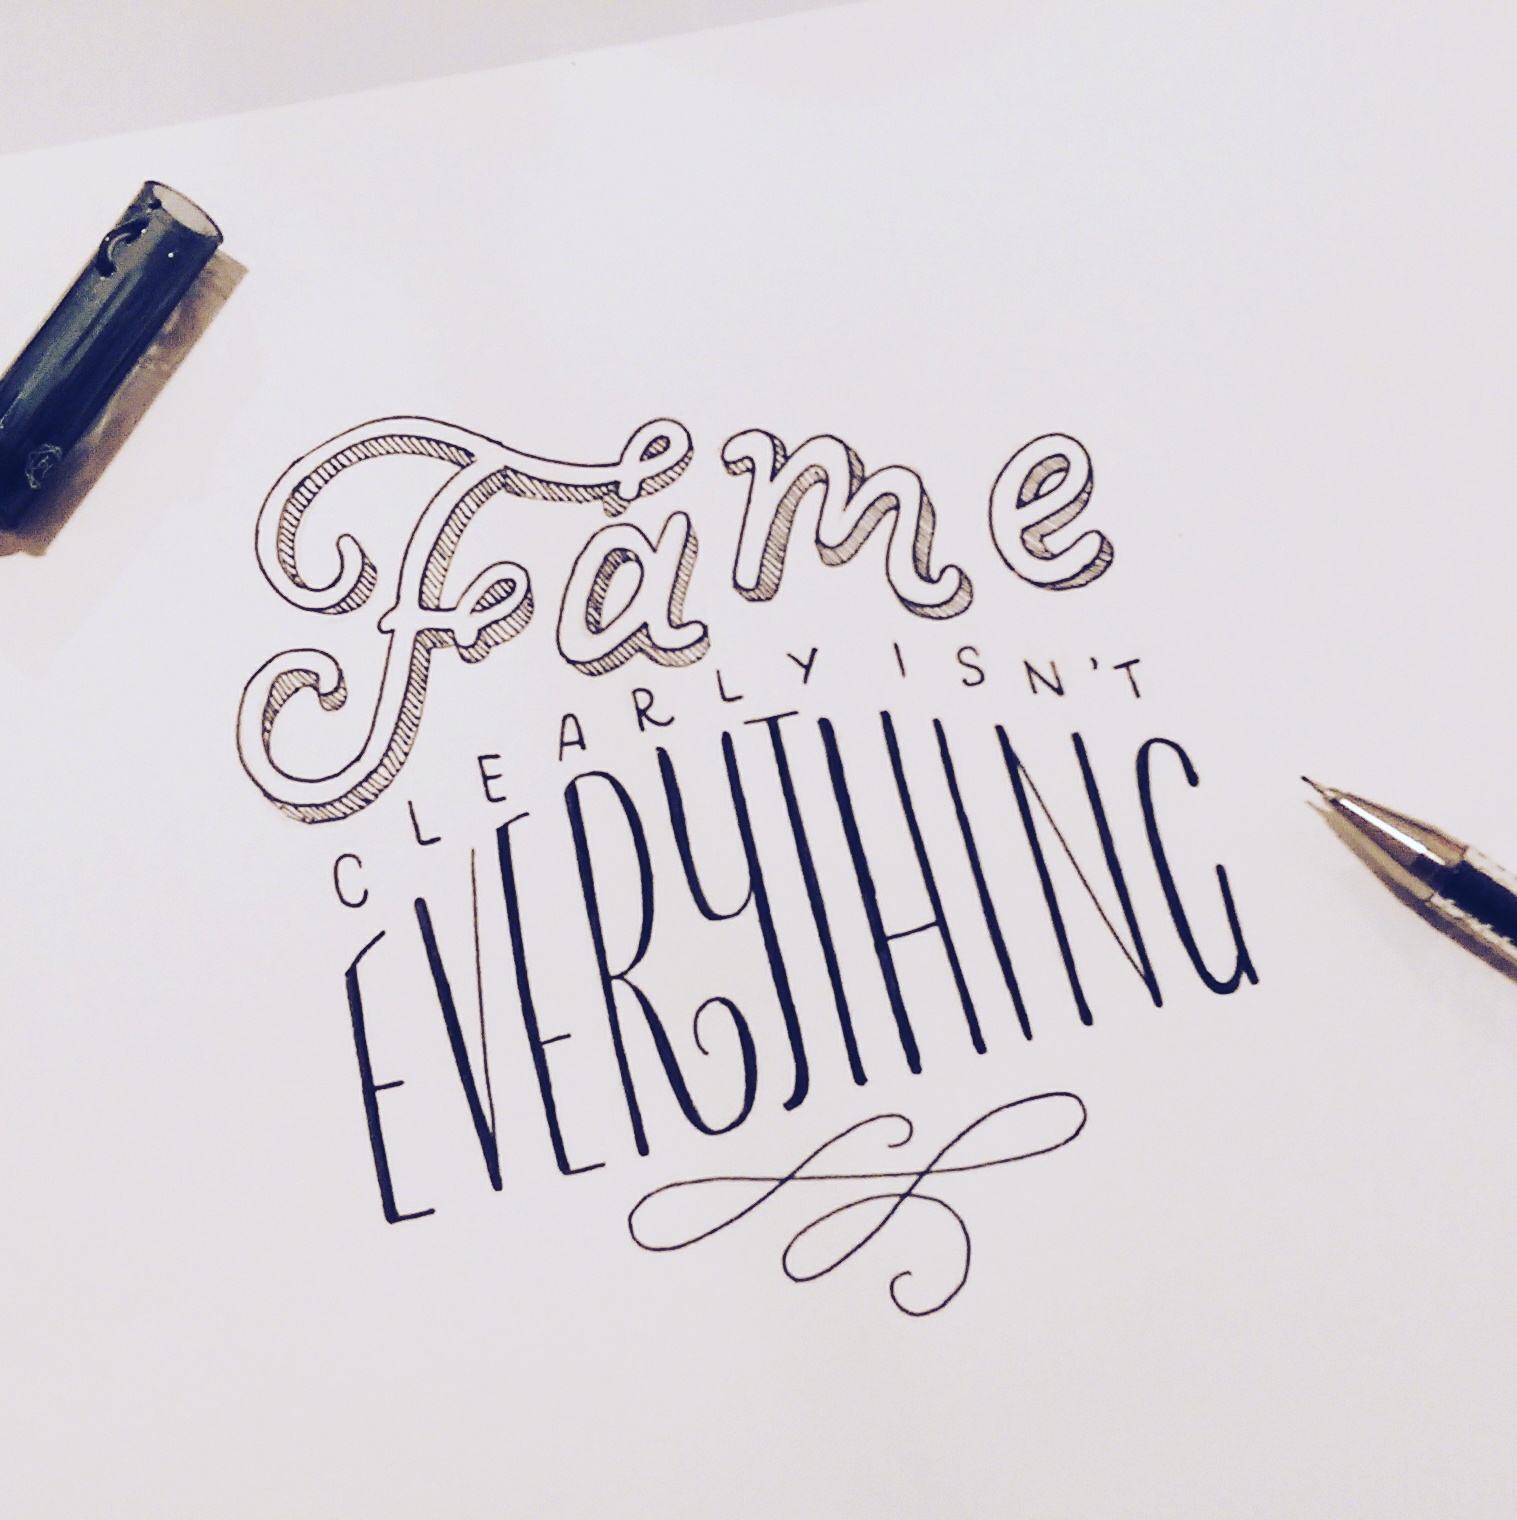 Fame
CLEARLY ISN'T
EVERYTHING